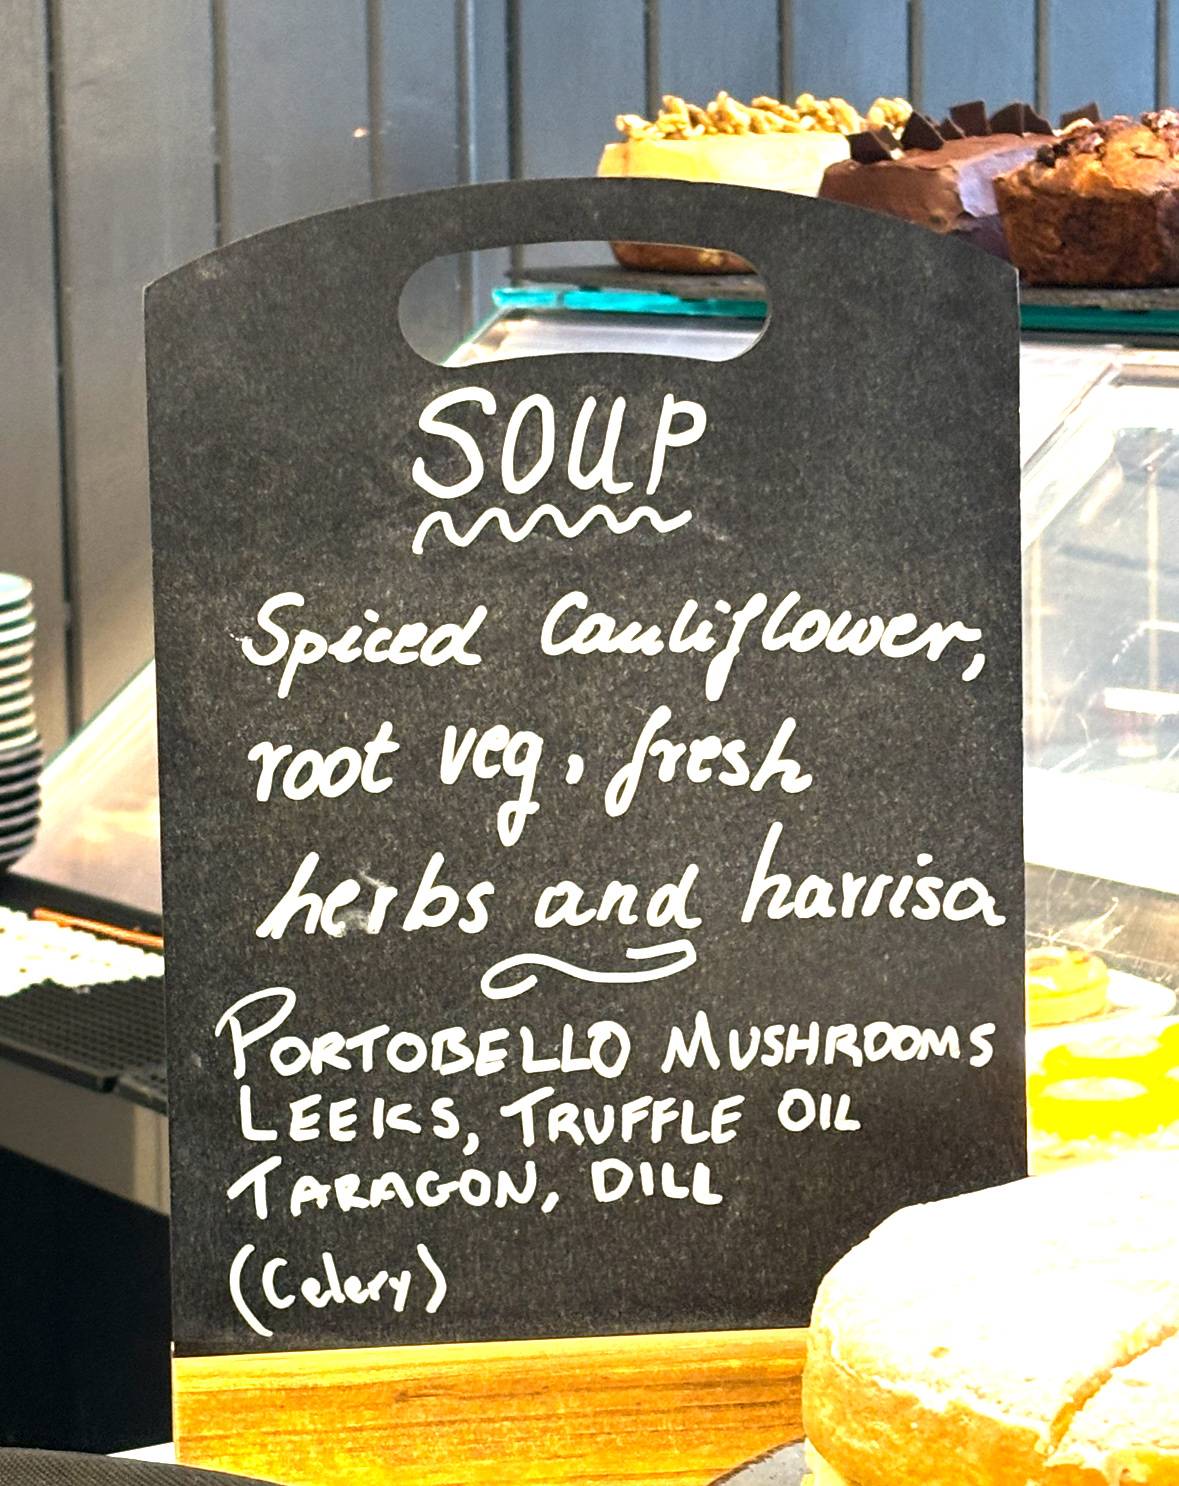 SOUP
Spiced Cauliflower,
root veg, fresh
herbs and harrisa
PORTOBELLO MUSHROOMS
LEEKS, TRUFFLE OIL
TARAGON, DILL
(Celery)